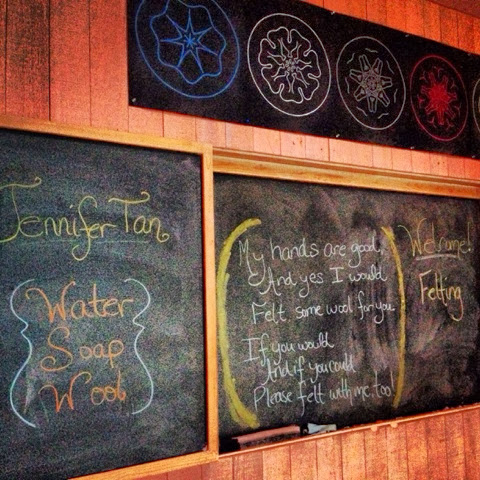 Jennifer Tan
Water
Soap
Wool
My hands are good,
And yes I would
Felt some wool for you
If you would
And if you could
Please felt with me, too!
Welcome!
Felting